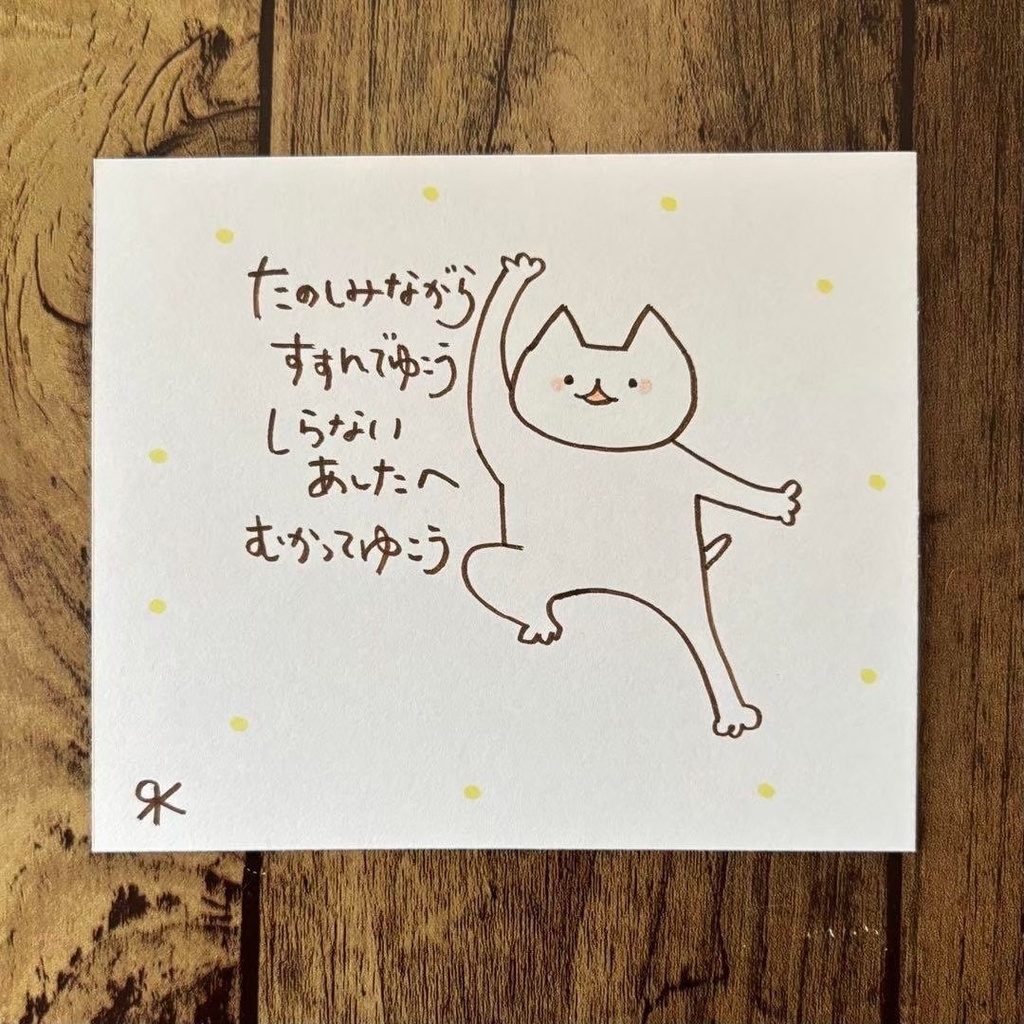 たのしみながら
すすんでゆこう
しらない
あしたへ
むかってゆこう
RK